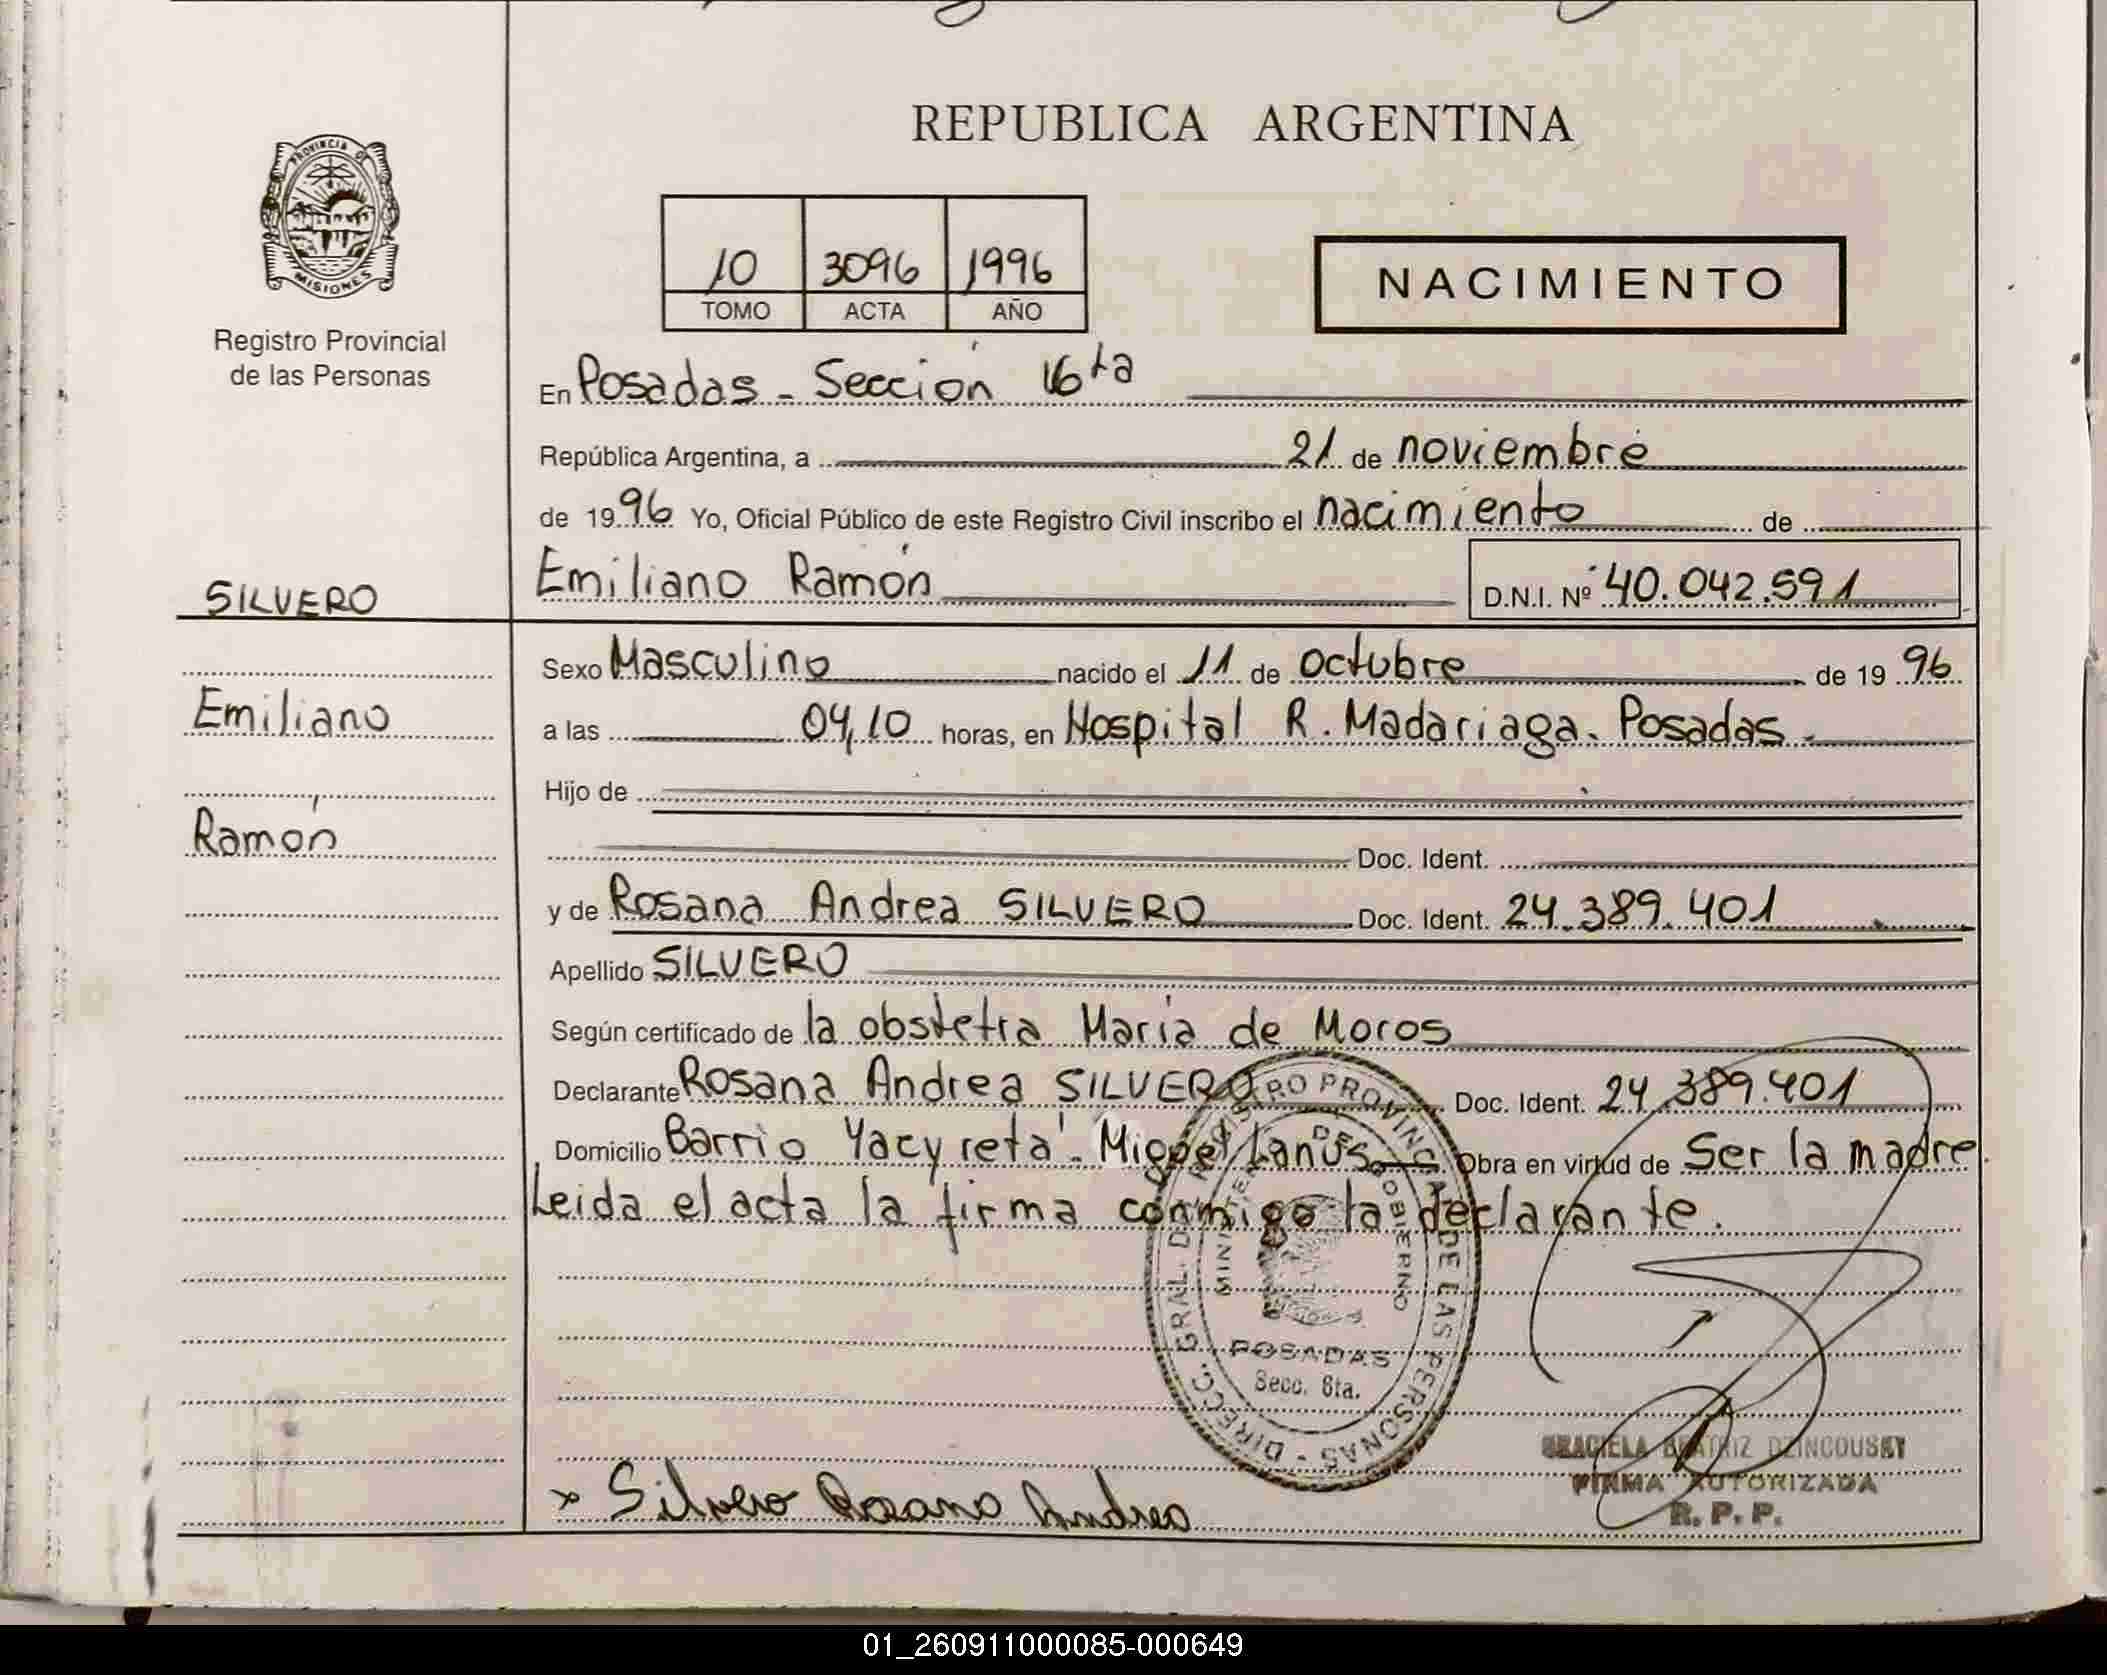 REPUBLICA ARGENTINA
PROVINCIA DE MISIONES
Registro Provincial
de las Personas
10 3096 1996
TOMO ACTA AÑO
NACIMIENTO
En Posadas - Sección 16ta
República Argentina, a 21 de noviembre
de 1996 Yo, Oficial Público de este Registro Civil inscribo el nacimiento de
Emiliano Ramón D.N.I. Nº 40.042.591
SILVERO
Emiliano
Ramón
Sexo Masculino nacido el 11 de octubre de 19 96
a las 04,10 horas, en Hospital R. Madariaga. Posadas.
Hijo de
Doc. Ident.
y de Rosana Andrea SILVERO Doc. Ident. 24.389.401
Apellido SILVERO
Según certificado de la obstetra María de Moros
Declarante Rosana Andrea SILVERO Doc. Ident. 24.389.401
Domicilio Barrio Yacyretá. Miguel Lanús Obra en virtud de Ser la madre.
Leida el acta la firma conmigo la declarante.
DIRECC. GRAL. DEL REGISTRO PROVINCIAL DE LAS PERSONAS
MINISTERIO DE GOBIERNO
POSADAS
Secc. 6ta.
GRACIELA BEATRIZ DZINCOUSKY
FIRMA AUTORIZADA
R. P. P.
x Silvero Rosana Andrea
01_260911000085-000649